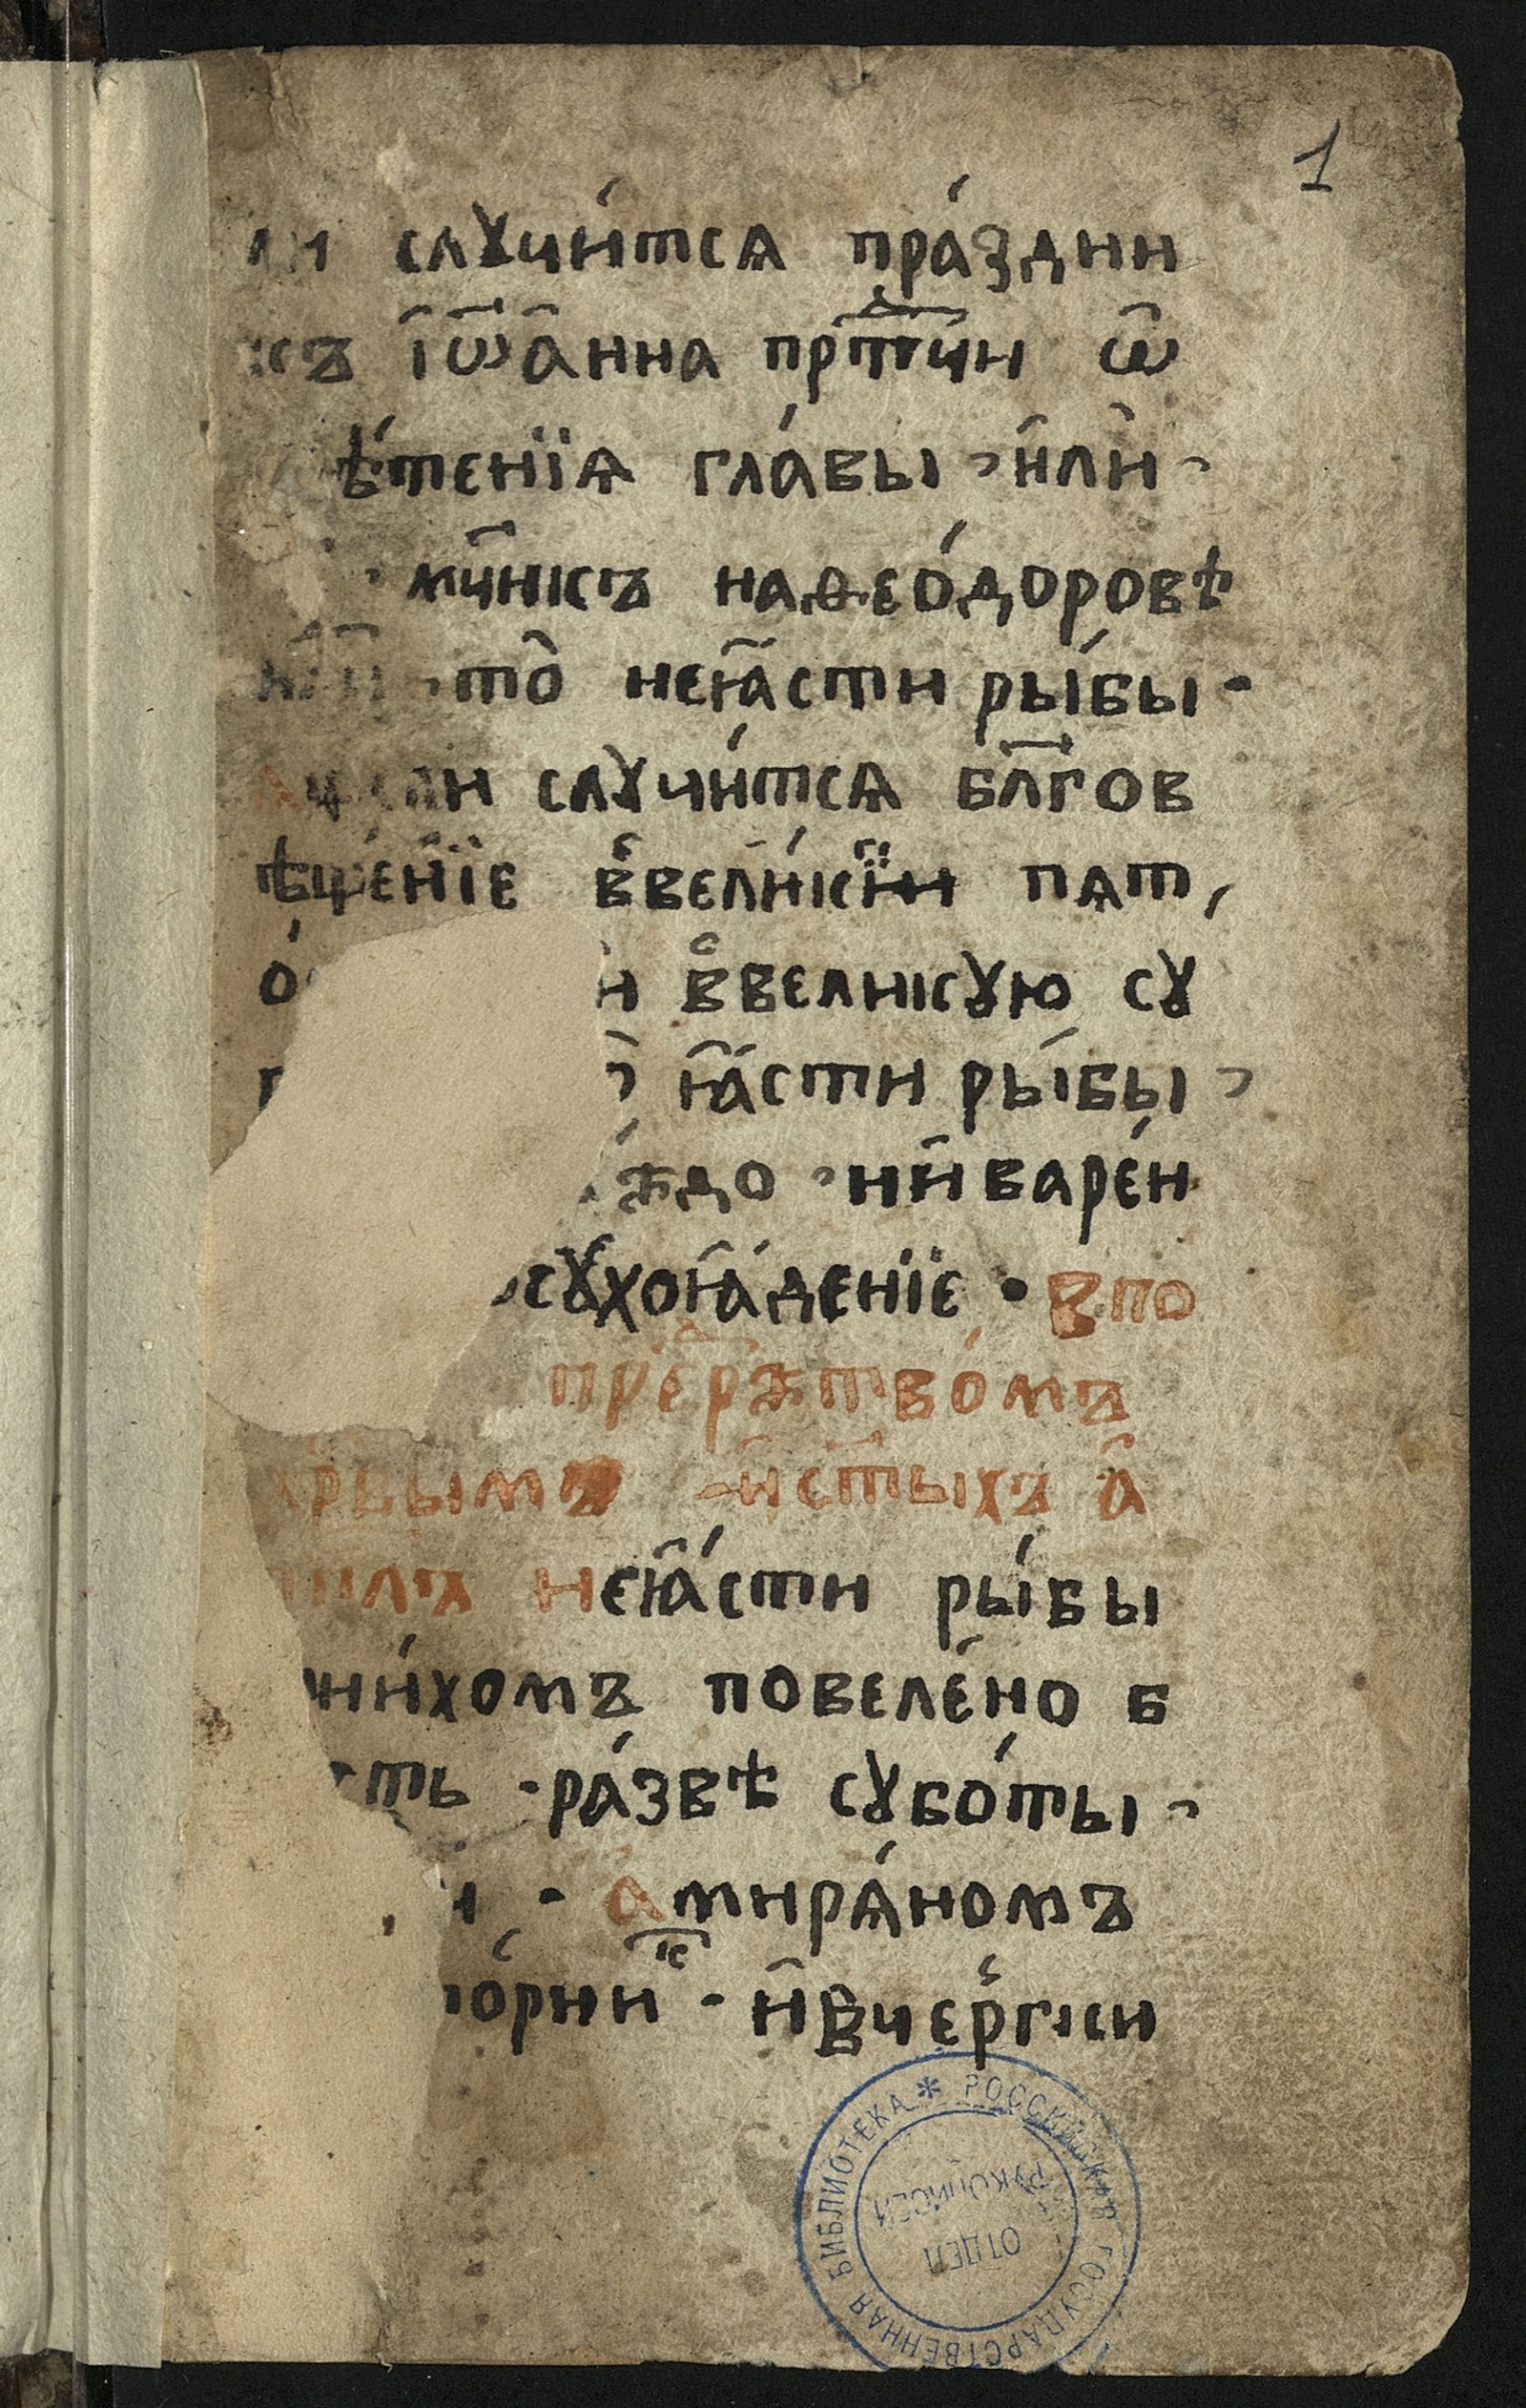 1
случи́тсѧ пра́здни
къ і҆ѡ҆а҆нна прⷣт҃чи ѡ҆
ѣ́тенїѧ гла́вы и҆ли҆
мч҃нкъ наѳео́доровѣ
то̑ неꙗ҆сти ры́бы
случи́тсѧ бл҃гов
ѣще́нїе вⸯвели́кїи пѧт
вⸯвеликꙋю сꙋ
ꙗ҆сти ры́бы
ни҆варе́н
сꙋхоꙗ҆де́нїе · впо
пре́рⷣжтво́мъ
и҆ст҃ыхъ а҆
неꙗ҆́сти ры́бы
повеле́но б
ра́звѣ сꙋбо́ты
а҆мирѧ́номъ
и҆вче́ргки
РОССИЙСКАЯ ГОСУДАРСТВЕННАЯ БИБЛИОТЕКА *
ОТДЕЛ
РУКОПИСЕЙ